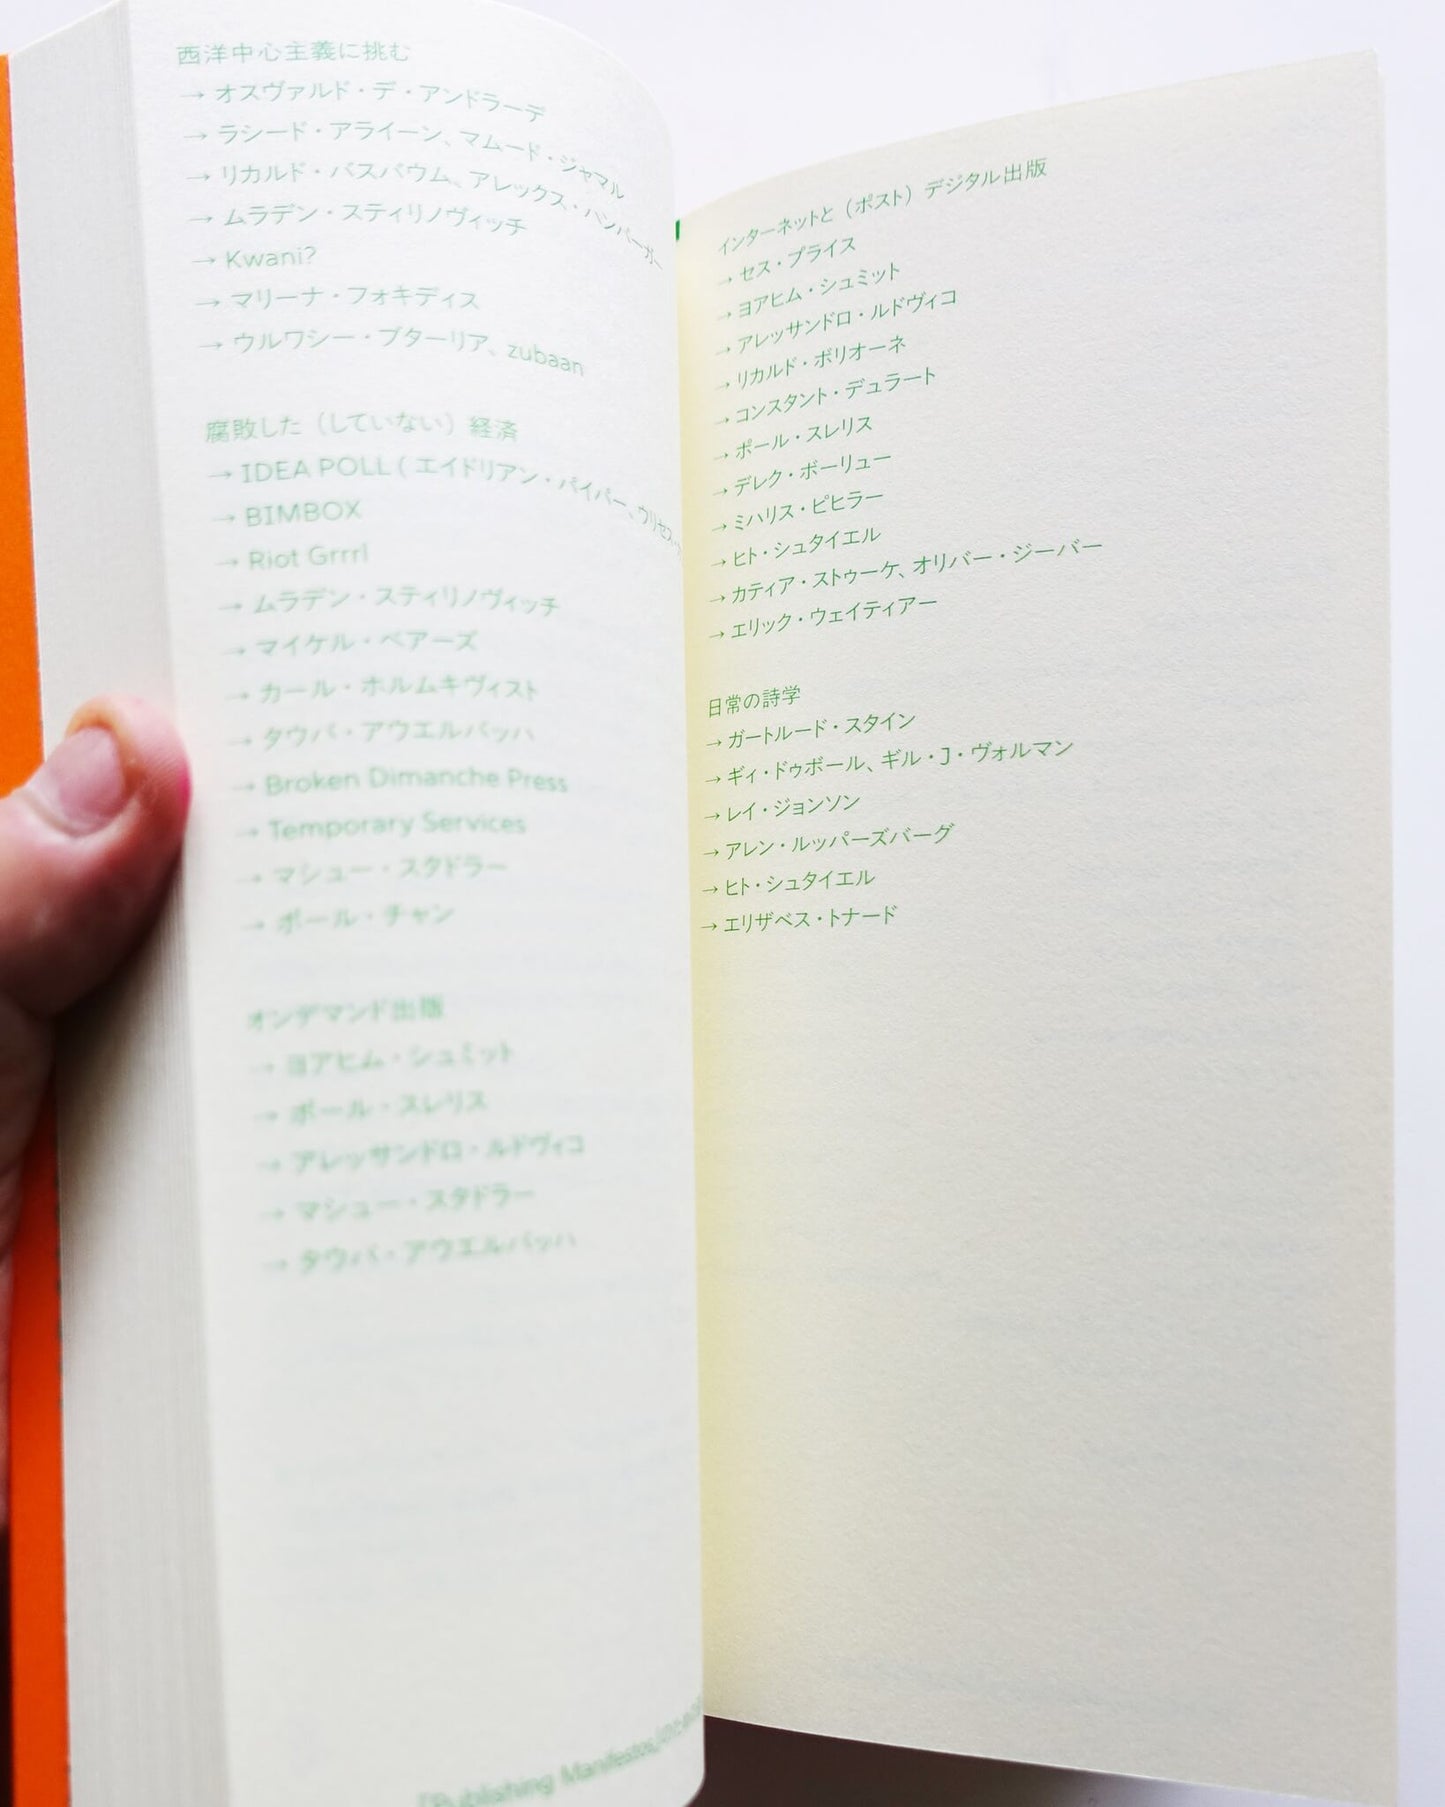 西洋中心主義に挑む
→ オスヴァルド・デ・アンドラーデ
→ ラシード・アライーン、マムード・ジャマル
→ リカルド・バスバウム、アレックス・ハンバーガー
→ ムラデン・スティリノヴィッチ
→ Kwani?
→ マリーナ・フォキディス
→ ウルワシー・ブターリア、zubaan
腐敗した（していない）経済
→ IDEA POLL ( エイドリアン・パイパー、ウリセス・
→ BIMBOX
→ Riot Grrrl
→ ムラデン・スティリノヴィッチ
→ マイケル・ベアーズ
→ カール・ホルムキヴィスト
→ タウバ・アウエルバッハ
→ Broken Dimanche Press
→ Temporary Services
→ マシュー・スタドラー
→ ポール・チャン
オンデマンド出版
→ ヨアヒム・シュミット
→ ポール・スレリス
→ アレッサンドロ・ルドヴィコ
→ マシュー・スタドラー
→ タウバ・アウエルバッハ
『Publishing Manifestos』のための
インターネットと（ポスト）デジタル出版
→ セス・プライス
→ ヨアヒム・シュミット
→ アレッサンドロ・ルドヴィコ
→ リカルド・ボリオーネ
→ コンスタント・デュラート
→ ポール・スレリス
→ デレク・ボーリュー
→ ミハリス・ピヒラー
→ ヒト・シュタイエル
→ カティア・ストゥーケ、オリバー・ジーバー
→ エリック・ウェイティアー
日常の詩学
→ ガートルード・スタイン
→ ギィ・ドゥボール、ギル・J・ヴォルマン
→ レイ・ジョンソン
→ アレン・ルッパーズバーグ
→ ヒト・シュタイエル
→ エリザベス・トナード